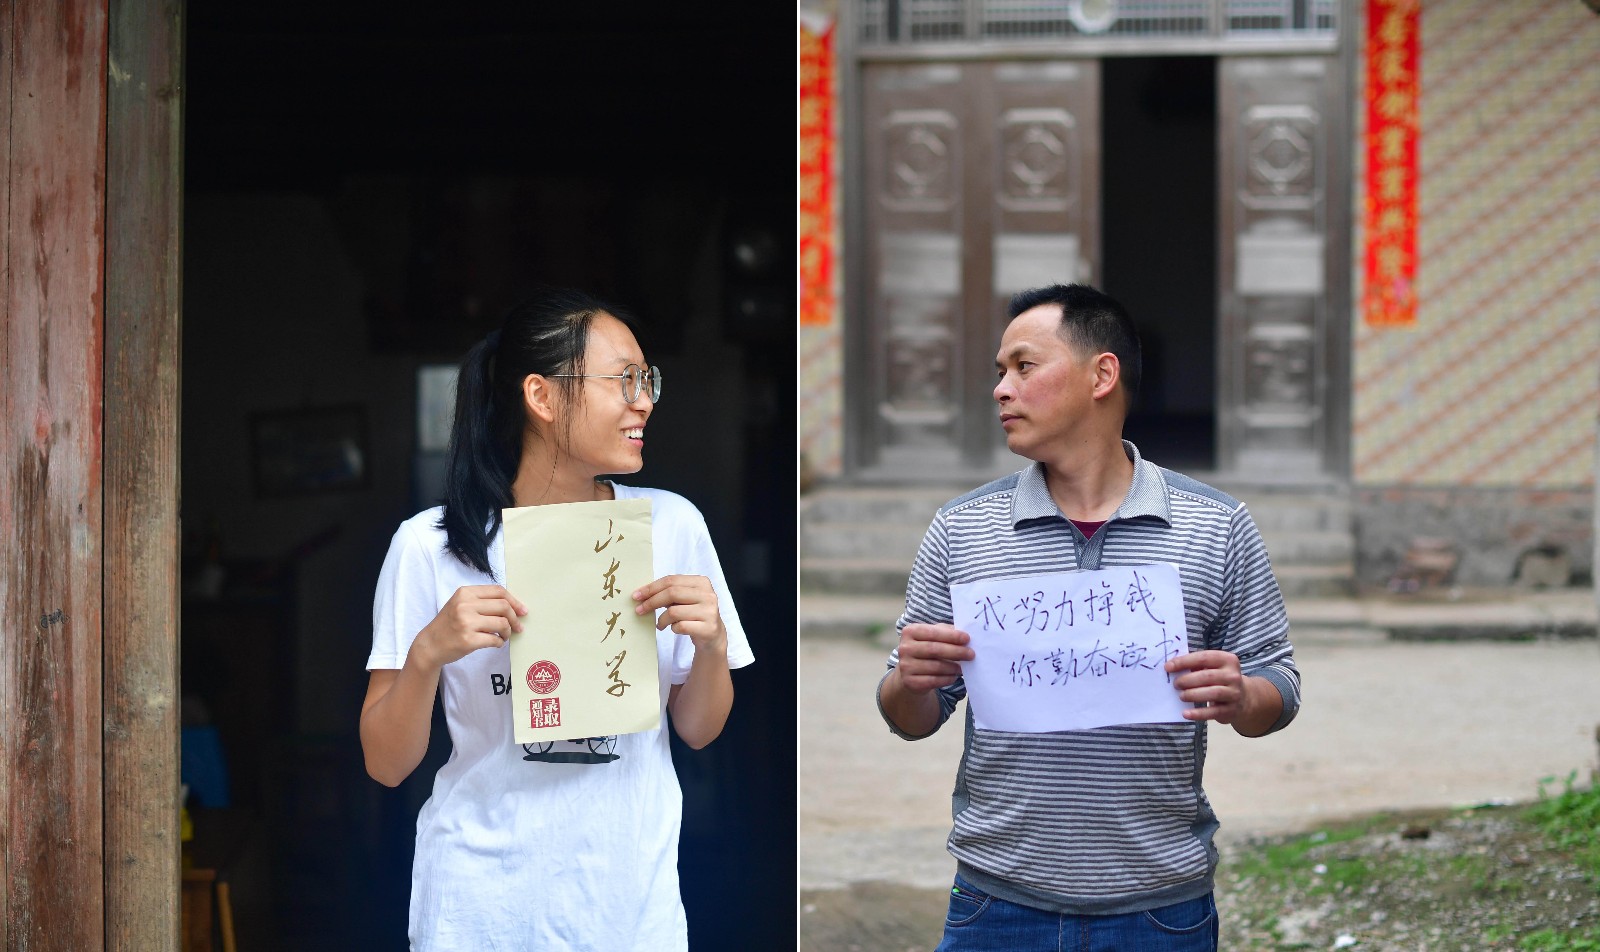 山东大学
录取
通知书
BA
我努力挣钱
你勤奋读书